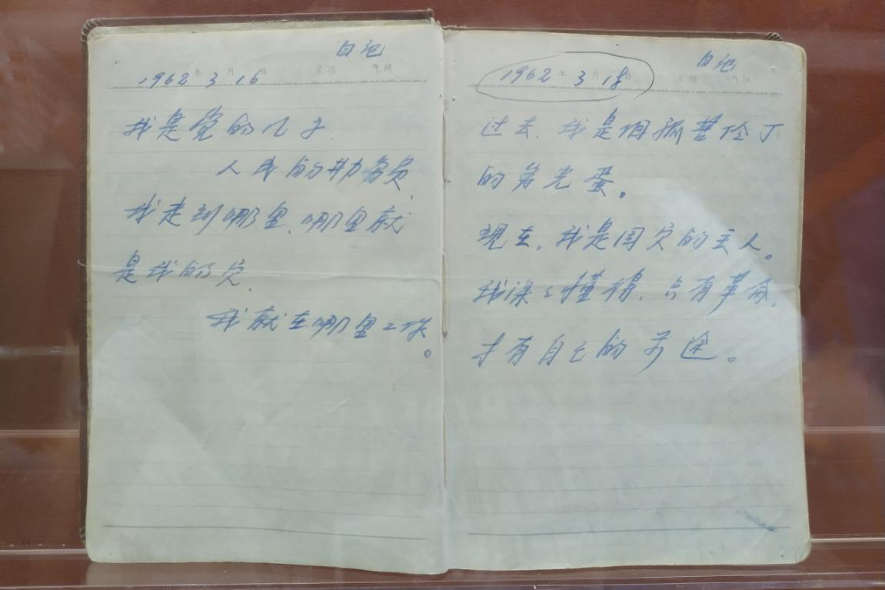 日记
1962年3月16日
我是党的儿子.
人民的勤务员,
我走到哪里、哪里就
是我的家,
我就在哪里工作
。
日记
1962年3月18日
过去、我是个孤苦伶丁
的穷光蛋。
现在,我是国家的主人。
我深深懂得,只有革命,
才有自己的前途。